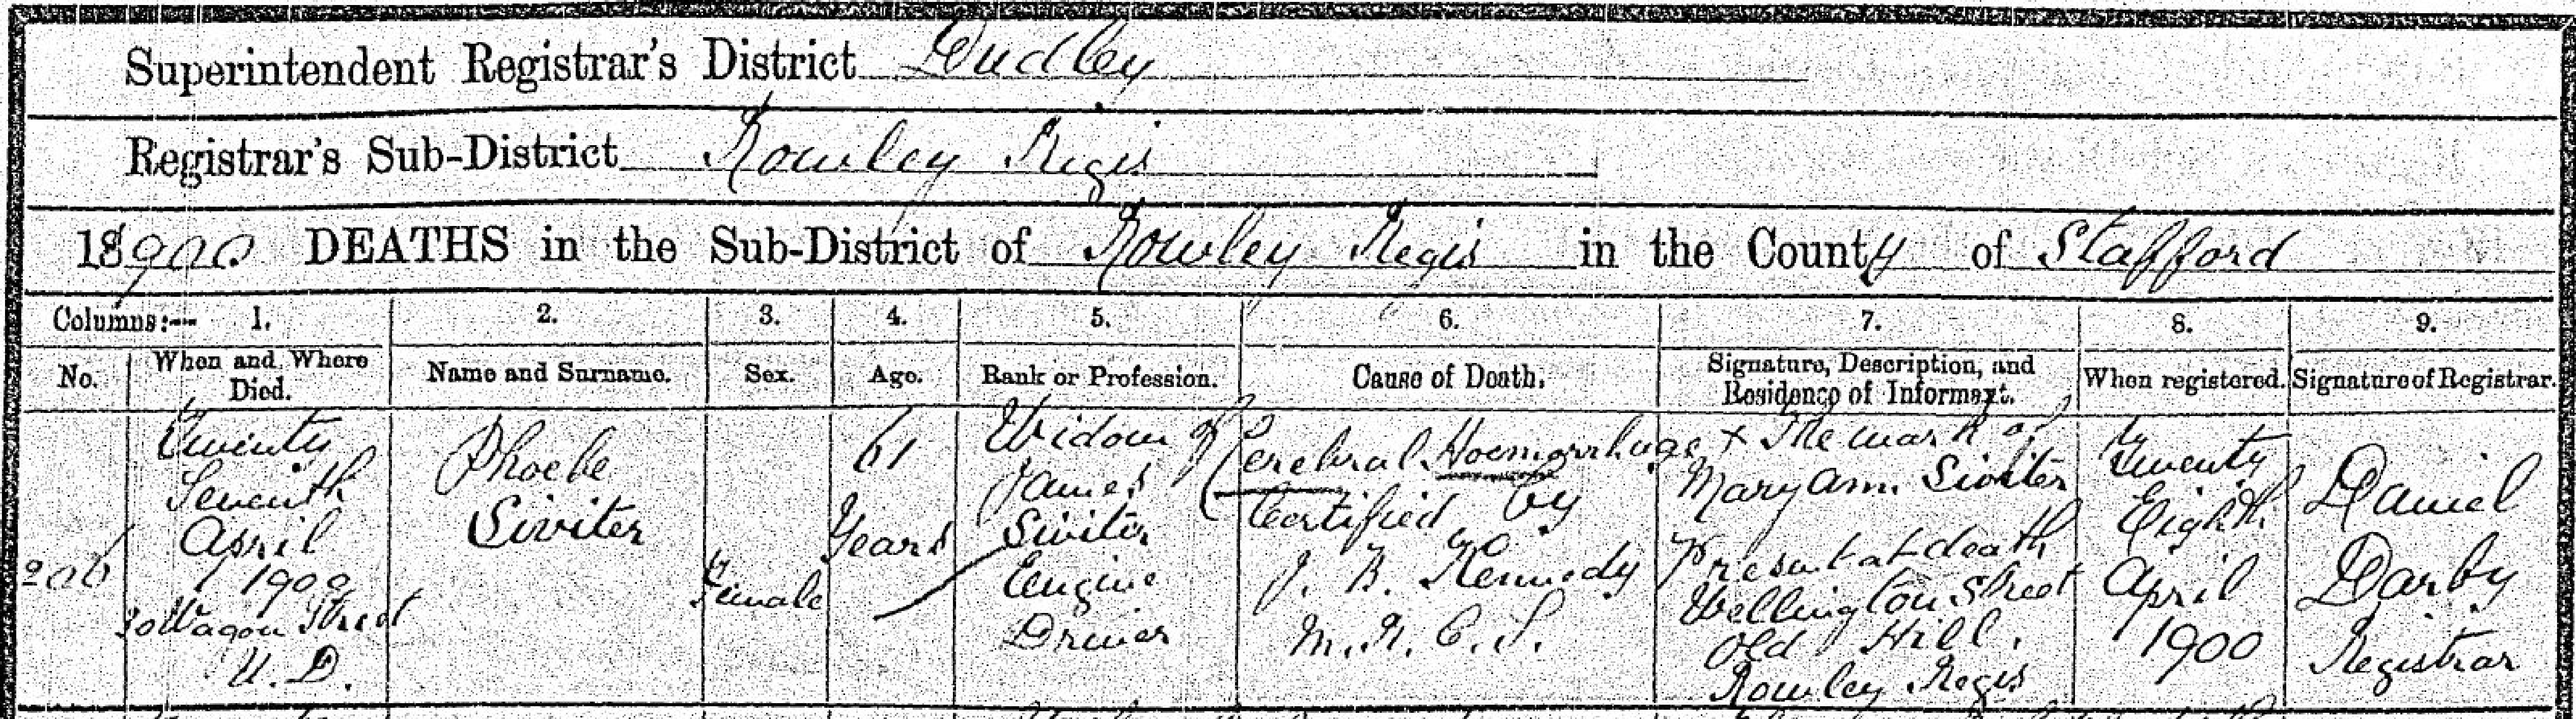 Superintendent Registrar's District Dudley
Registrar's Sub-District Rowley Regis
18900 DEATHS in the Sub-District of Rowley Regis in the County of Stafford
Columns:— 1. 2. 3. 4. 5. 6. 7. 8. 9.
No. When and Where Died. Name and Surname. Sex. Age. Rank or Profession. Cause of Death. Signature, Description, and Residence of Informant. When registered. Signature of Registrar.
206
Twenty
Seventh
April
1900
30 Wagon Street
U. D.
Phoebe
Siviter
Female
61
Years
Widow of
James
Siviter
Engine
Driver
Cerebral Hoemorrhage
Certified by
J. B. Kennedy
M. R. C. S.
x The mark of
Mary Ann Siviter
Present at death
Wellington Street
Old Hill,
Rowley Regis
Twenty
Eighth
April
1900
Daniel
Darby
Registrar